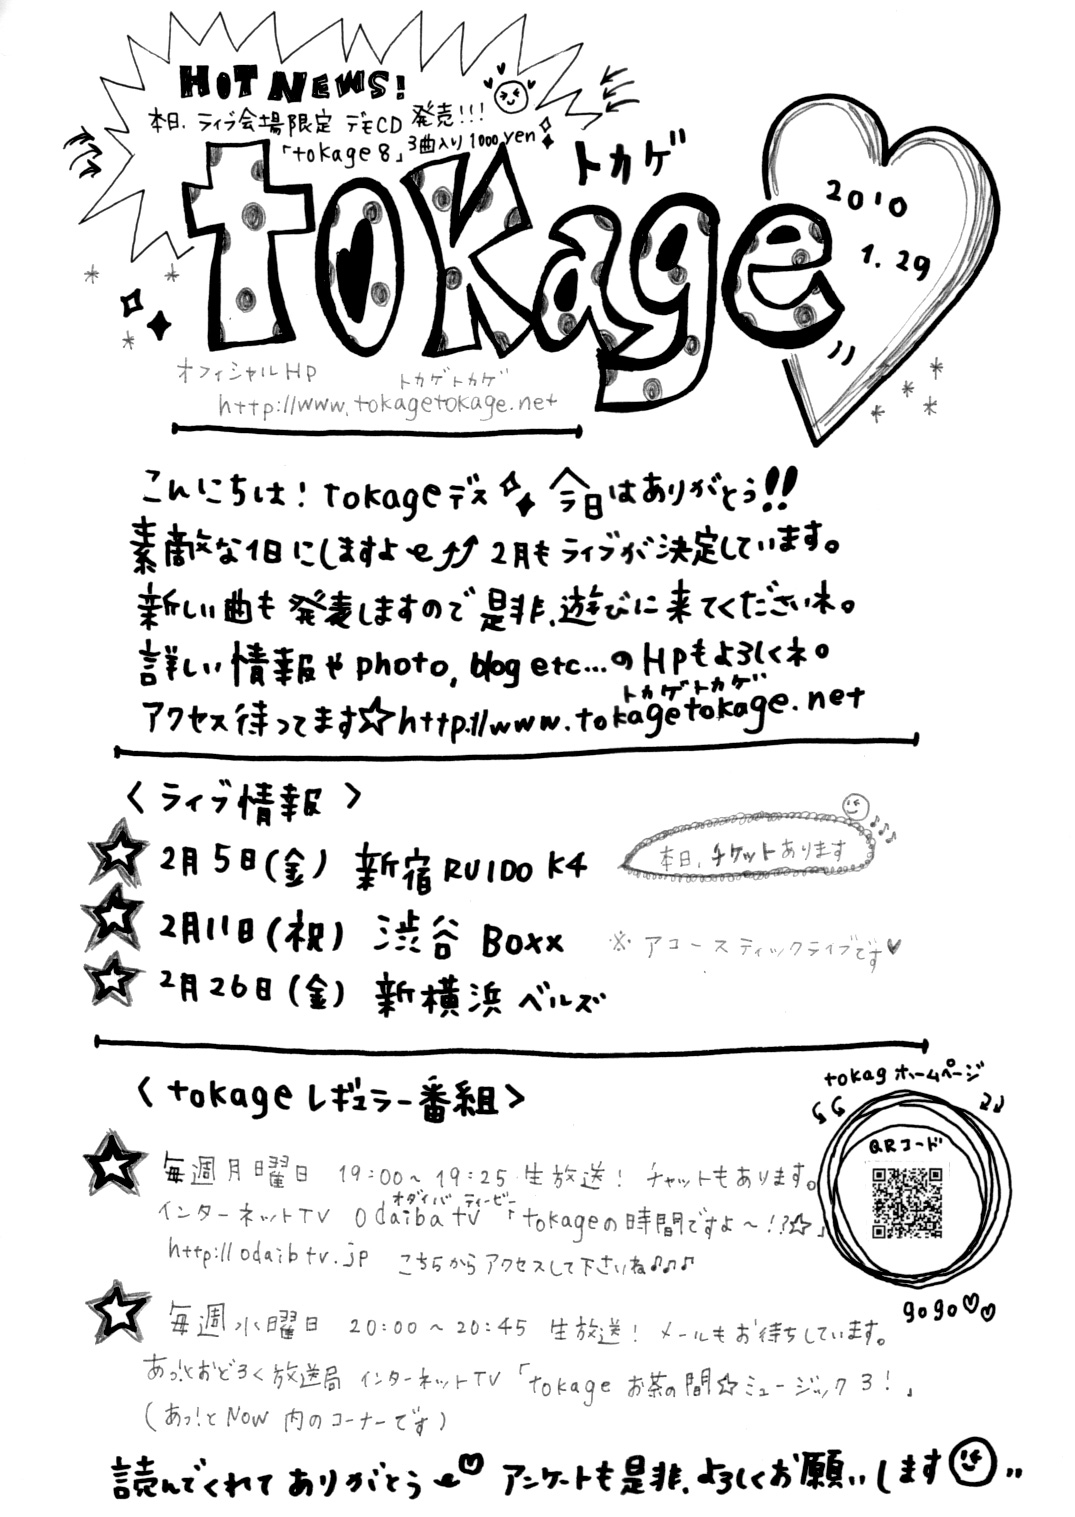 HOT NEWS!
本日、ライブ会場限定 デモCD 発売!!!
「tokage 8」3曲入り1000yen
トカゲ
tokage
2010
1.29
オフィシャルHP
トカゲトカゲ
http://www.tokagetokage.net
こんにちは! tokageデス 今日はありがとう!!
素敵な1日にしますよ〜⤴⤴ 2月もライブが決定しています。
新しい曲も発表しますので是非、遊びに来てくださいネ。
詳しい情報やphoto, blog etc...のHPもよろしくネ。
トカゲトカゲ
アクセス待ってます☆http://www.tokagetokage.net
〈ライブ情報〉
★2月5日(金) 新宿RUIDO K4
本日、チケットあります♪♪♪
★2月11日(祝) 渋谷 Boxx ※アコースティックライブです♥
★2月26日(金) 新横浜 ベルズ
〈tokage レギュラー番組〉
tokag ホームページ
QRコード
gogo♡♡
★毎週月曜日 19:00〜19:25 生放送! チャットもあります。
オダイバ ティービー
インターネットTV odaiba tv「tokageの時間ですよ〜!?☆」
http://odaibtv.jp こちらからアクセスして下さいね♪♪♪
★毎週水曜日 20:00〜20:45 生放送! メールもお待ちしています。
あっ!とおどろく放送局 インターネットTV「tokage お茶の間☆ミュージック3!」
(あっ!とNow 内のコーナーです)
読んでくれてありがとう〜♡ アンケートも是非、よろしくお願いします